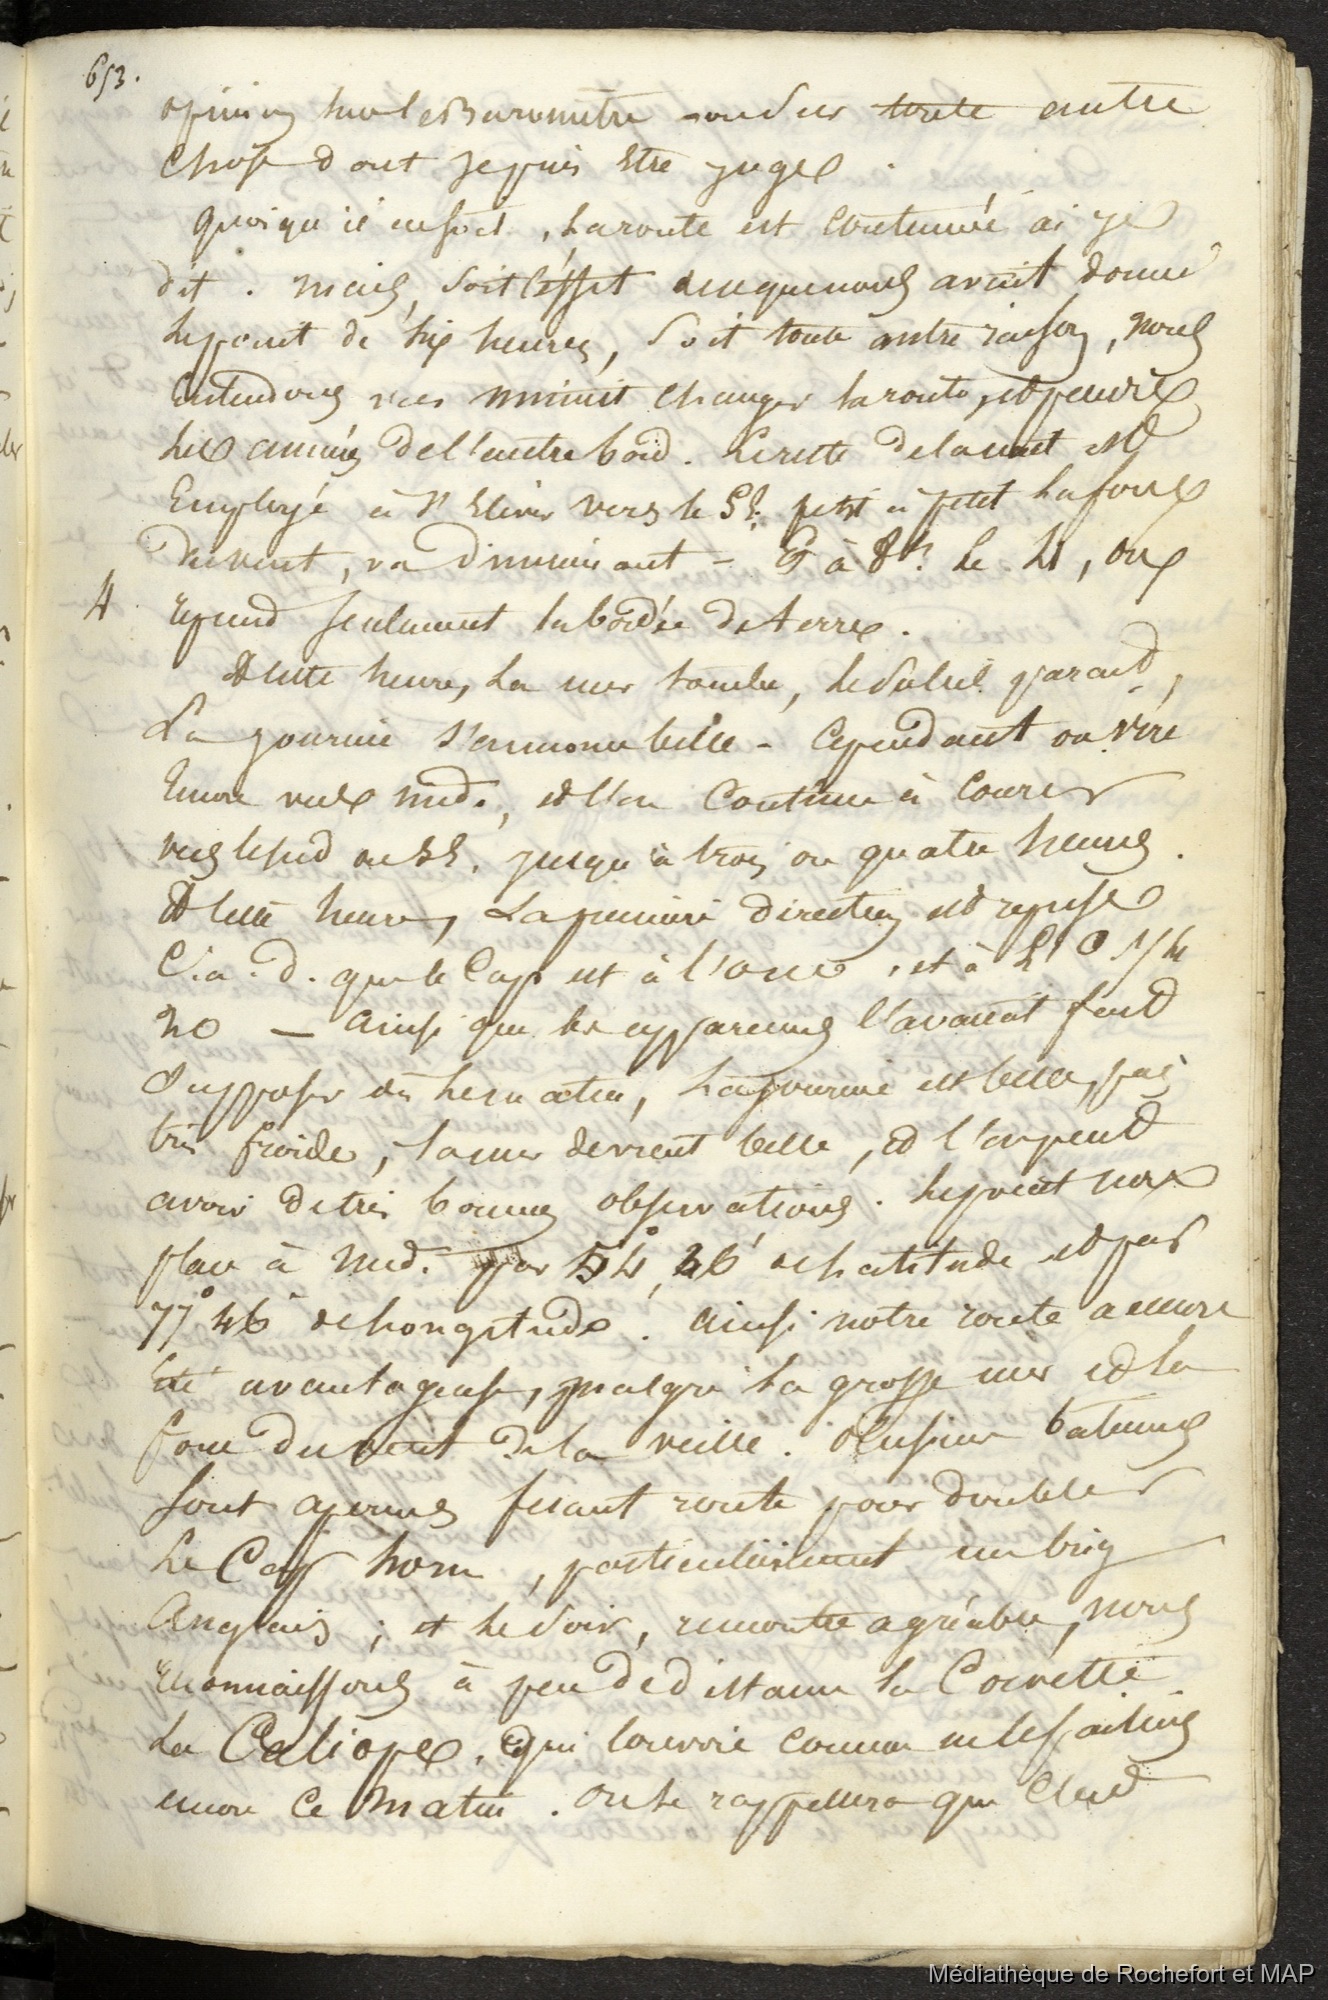 653.
opinion sur le Baromètre ou sur toute autre
chose dont je puis être juge.
Quoiqu'il en soit, la route est continué ai je
dit. mais, soit l'effet que nous avait donné
le point de six heures, soit toute autre raison, nous
entendons vers minuit changer la route, et prendre
les amures de l'autre bord. Le reste de la nuit est
Employé à s'élever vers le SE. petit à petit la force
du vent, va diminuant - Et à 8h. le 4, on
4
reprend seulement la bordée de terre.
A cette heure, la mer tombe, le soleil parait,
La journée s'annonce belle - Cependant on vire
Encore vers midi, et l'on continue à courir
vers le sud ou SE. jusqu'à trois ou quatre heures.
A cette heure, la première direction est reprise
C. a. d. que le Cap est à l'ouest, et à l'O 1/4
NO — ainsi que les apparences l'avaient fait
supposer dès le matin, la journée est belle, pas
très froide, la mer devient belle, et l'on peut
avoir de très bonnes observations. le point nous
place à midi par 54° 36' de latitude et par
77° 46' de longitude. ainsi notre route a encore
Eté avantageuse, malgré la grosse mer et la
force du vent de la veille. Plusieurs batimens
sont aperçus fesant route pour doubler
Le Cap horn, particulièrement un brig
Anglais ; et le soir, rencontre agréable, nous
reconnaissons à peu de distance la Corvette
La Caliope, qui louvoie comme nous le faisions
encore ce matin. on se rappellera que c'est
Médiathèque de Rochefort et MAP